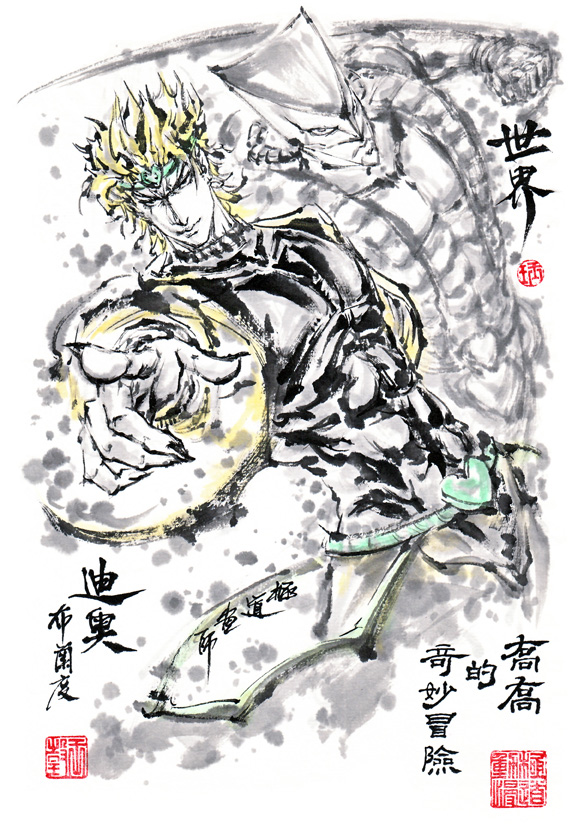 世界
喬喬
的
奇妙冒險
極道畫師
迪奧
布蘭度
極道
動漫